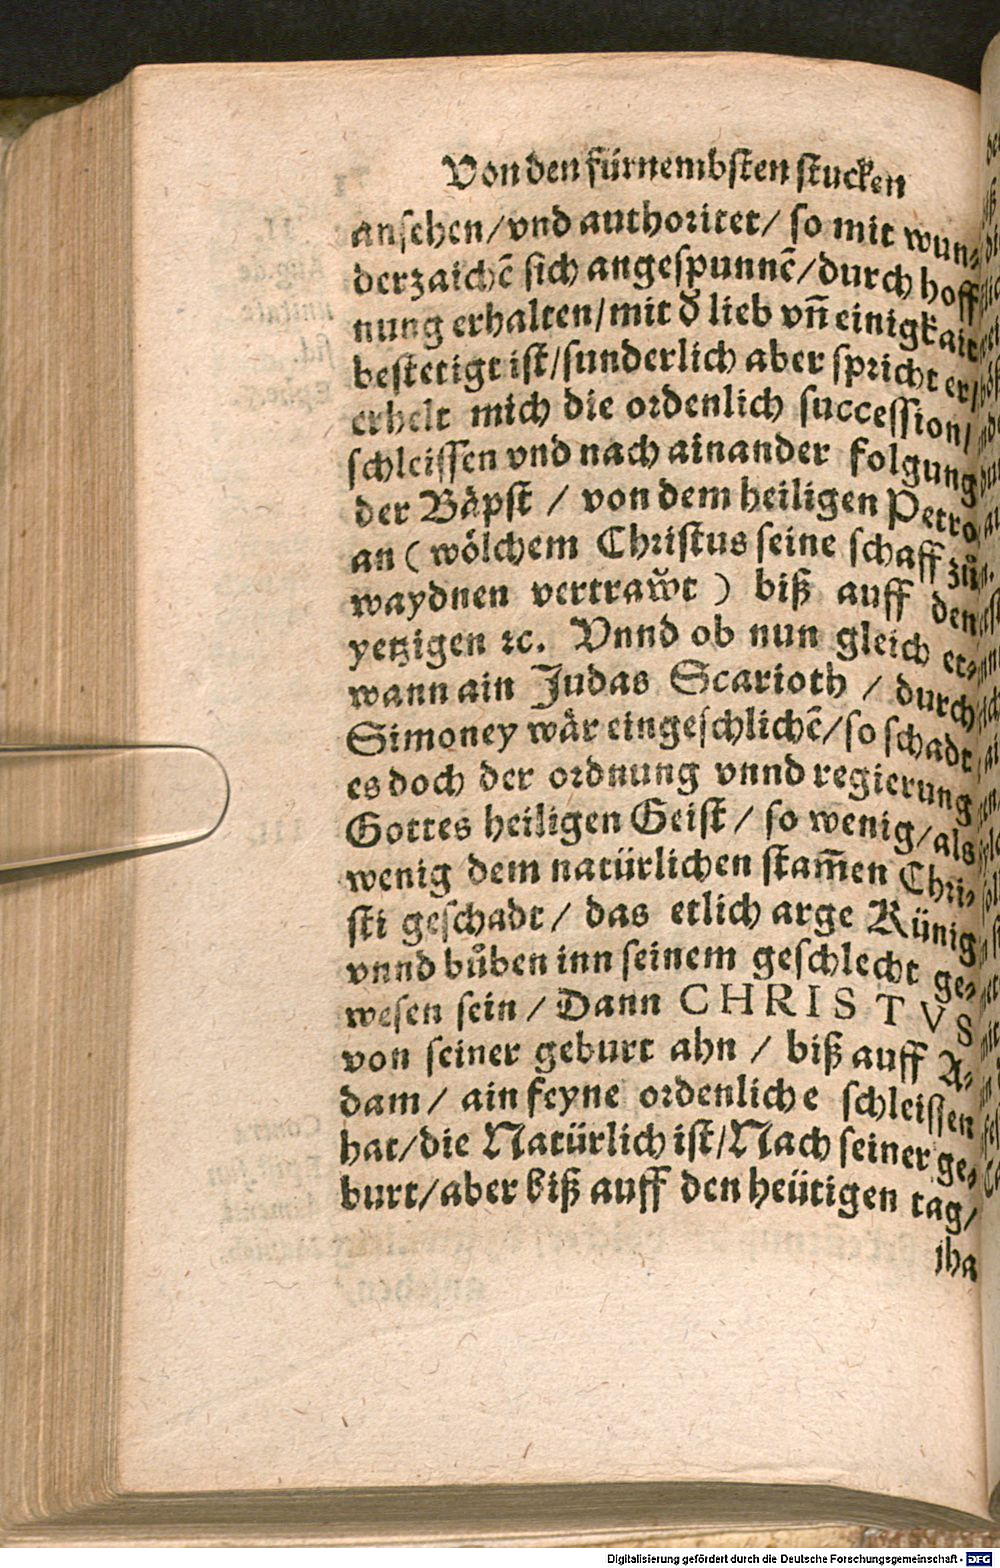 Von den fürnembsten stucken
ansehen/vnd authoritet/ so mit wun-
derzaichẽ sich angespunnẽ/durch hoff
nung erhalten/mit ð lieb vñ einigkait
bestetigt ist/sunderlich aber spricht er/
erhelt mich die ordenlich succession/
schleissen vnd nach ainander folgung
der Bäpst / von dem heiligen Petro
an ( wölchem Christus seine schaff zů
waydnen vertrawt ) biß auff den
yetzigen ꝛc. Vnnd ob nun gleich et-
wann ain Judas Scarioth / durch
Simoney wär eingeschlichẽ/so schadt
es doch der ordnung vnnd regierung
Gottes heiligen Geist/ so wenig/als
wenig dem natürlichen stam̃en Chri-
sti geschadt/ das etlich arge Künig
vnnd bůben inn seinem geschlecht ge-
wesen sein/ Dann CHRISTVS
von seiner geburt ahn / biß auff A-
dam/ ain feyne ordenliche schleissen
hat/die Natürlich ist/Nach seiner ge-
burt/aber biß auff den heütigen tag/
iha
Digitalisierung gefördert durch die Deutsche Forschungsgemeinschaft - DFG